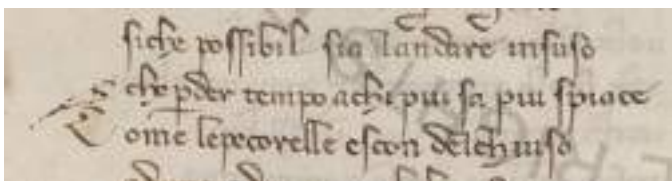 siche possibil sia landare insuso
che pder tempo achi piu sa piu spiace
Come lepecorelle escon delchiuso